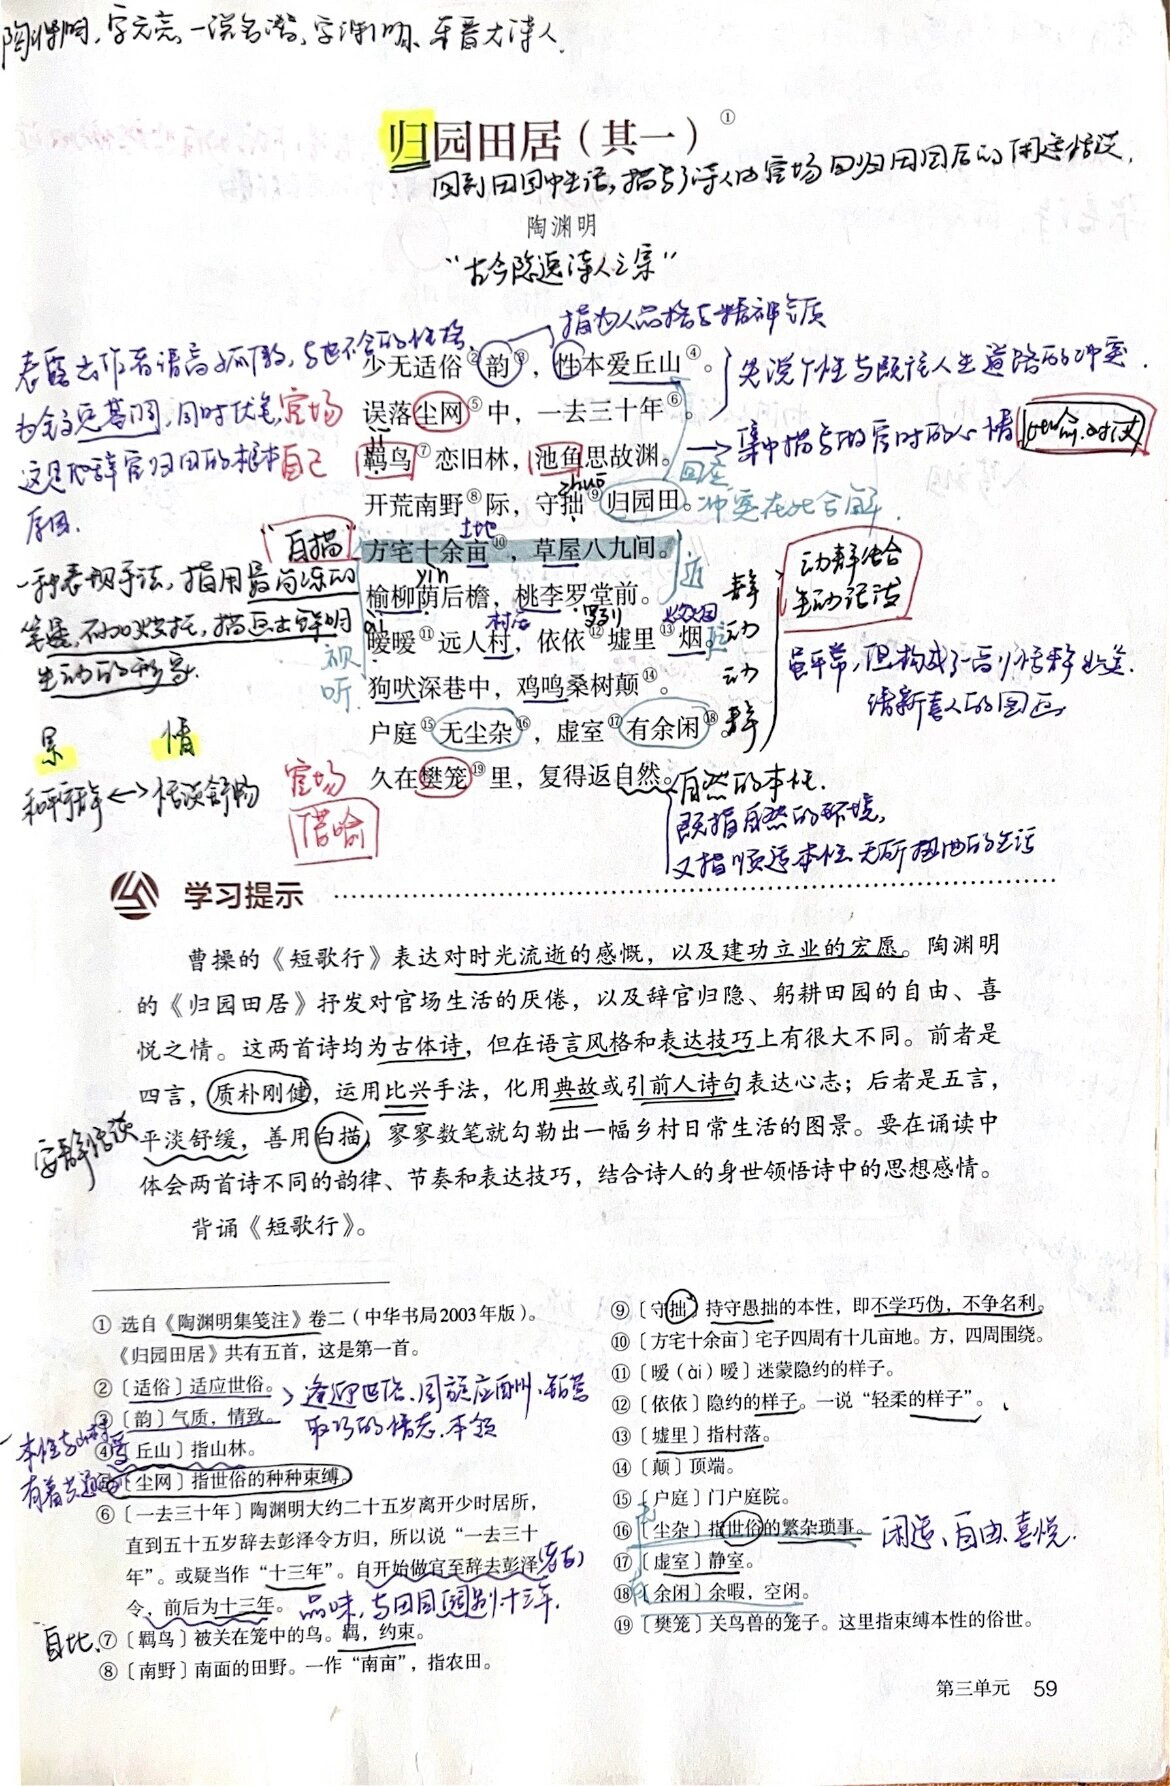 陶渊明，字元亮，一说名潜，字渊明，东晋大诗人.
归园田居（其一）①
回到田园中生活，描写了诗人由官场回归田园后的闲适恬淡.
陶渊明
“古今隐逸诗人之宗”
指为人品格与精神气质
表露出作者清高孤傲，与世不合的性格
少无适俗②韵③，性本爱丘山④。
先说个性与既往人生道路的冲突.
为全文定基调，同时伏笔，官场
误落尘网⑤中，一去三十年⑥。
这是他辞官归田的根本
原因.
自己
羁鸟⑦恋旧林，池鱼思故渊。
jī
集中描写做官时的心情
zhuō
开荒南野⑧际，守拙⑨归园田。
回应
冲突在此合解.
“白描”
土地
方宅十余亩⑩，草屋八九间。
近
一种表现手法，指用最简练的
笔墨，不加烘托，描画出鲜明
生动的形象.
yìn
榆柳荫后檐，桃李罗堂前。
静
村庄
罗列
炊烟
ài
暧暧⑪远人村，依依⑫墟里⑬烟。
远
动
视
听
狗吠深巷中，鸡鸣桑树颠⑭。
动
户庭⑮无尘杂⑯，虚室⑰有余闲⑱。
静
动静结合
生动活泼
虽平常，但构成了一副恬静幽美.
清新喜人的图画
景 情
和平宁静↔恬淡舒畅
官场
借喻
久在樊笼⑲里，复得返自然。
自然的本性.
既指自然的环境，
又指顺适本性、无所扭曲的生活
学习提示
曹操的《短歌行》表达对时光流逝的感慨，以及建功立业的宏愿。陶渊明
的《归园田居》抒发对官场生活的厌倦，以及辞官归隐、躬耕田园的自由、喜
悦之情。这两首诗均为古体诗，但在语言风格和表达技巧上有很大不同。前者是
四言，质朴刚健，运用比兴手法，化用典故或引前人诗句表达心志；后者是五言，
安静恬淡
平淡舒缓，善用白描，寥寥数笔就勾勒出一幅乡村日常生活的图景。要在诵读中
体会两首诗不同的韵律、节奏和表达技巧，结合诗人的身世领悟诗中的思想感情。
背诵《短歌行》。
① 选自《陶渊明集笺注》卷二（中华书局2003年版）。
《归园田居》共有五首，这是第一首。
②〔适俗〕适应世俗。
逢迎世俗、周旋应酬、钻营
③〔韵〕气质，情致。
取巧的情态、本领
④〔丘山〕指山林。
⑤〔尘网〕指世俗的种种束缚。
⑥〔一去三十年〕陶渊明大约二十五岁离开少时居所，
直到五十五岁辞去彭泽令方归，所以说“一去三十
年”。或疑当作“十三年”。自开始做官至辞去彭泽
令，前后为十三年。
品味，与田园阔别十三年.
自比.
⑦〔羁鸟〕被关在笼中的鸟。羁，约束。
⑧〔南野〕南面的田野。一作“南亩”，指农田。
⑨〔守拙〕持守愚拙的本性，即不学巧伪，不争名利。
⑩〔方宅十余亩〕宅子四周有十几亩地。方，四周围绕。
⑪〔暧（ài）暧〕迷蒙隐约的样子。
⑫〔依依〕隐约的样子。一说“轻柔的样子”。
⑬〔墟里〕指村落。
⑭〔颠〕顶端。
⑮〔户庭〕门户庭院。
⑯〔尘杂〕指世俗的繁杂琐事。
闲适、自由、喜悦.
⑰〔虚室〕静室。
⑱〔余闲〕余暇，空闲。
⑲〔樊笼〕关鸟兽的笼子。这里指束缚本性的俗世。
第三单元 59